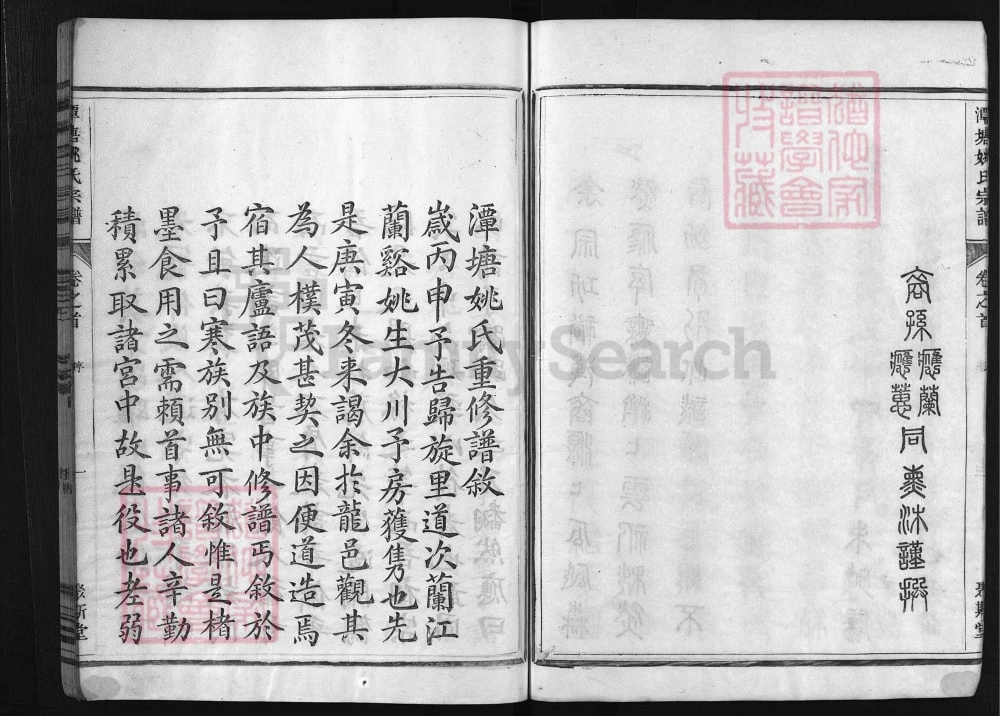 潭塘姚氏宗譜
卷之首
裔孫
應蘭
應蕙
同熏沐謹撰
潭塘姚氏重修譜敘
歲丙申予告歸旋里道次蘭江
蘭谿姚生大川予房獲雋也先
是庚寅冬来謁余於龍邑觀其
為人樸茂甚契之因便道造焉
宿其廬語及族中修譜丐敘於
予且曰寒族別無可敘惟是楮
墨食用之需頼首事諸人辛勤
積累取諸宮中故是役也老弱
潭塘姚氏宗譜
卷之首
序
一
FamilySearch